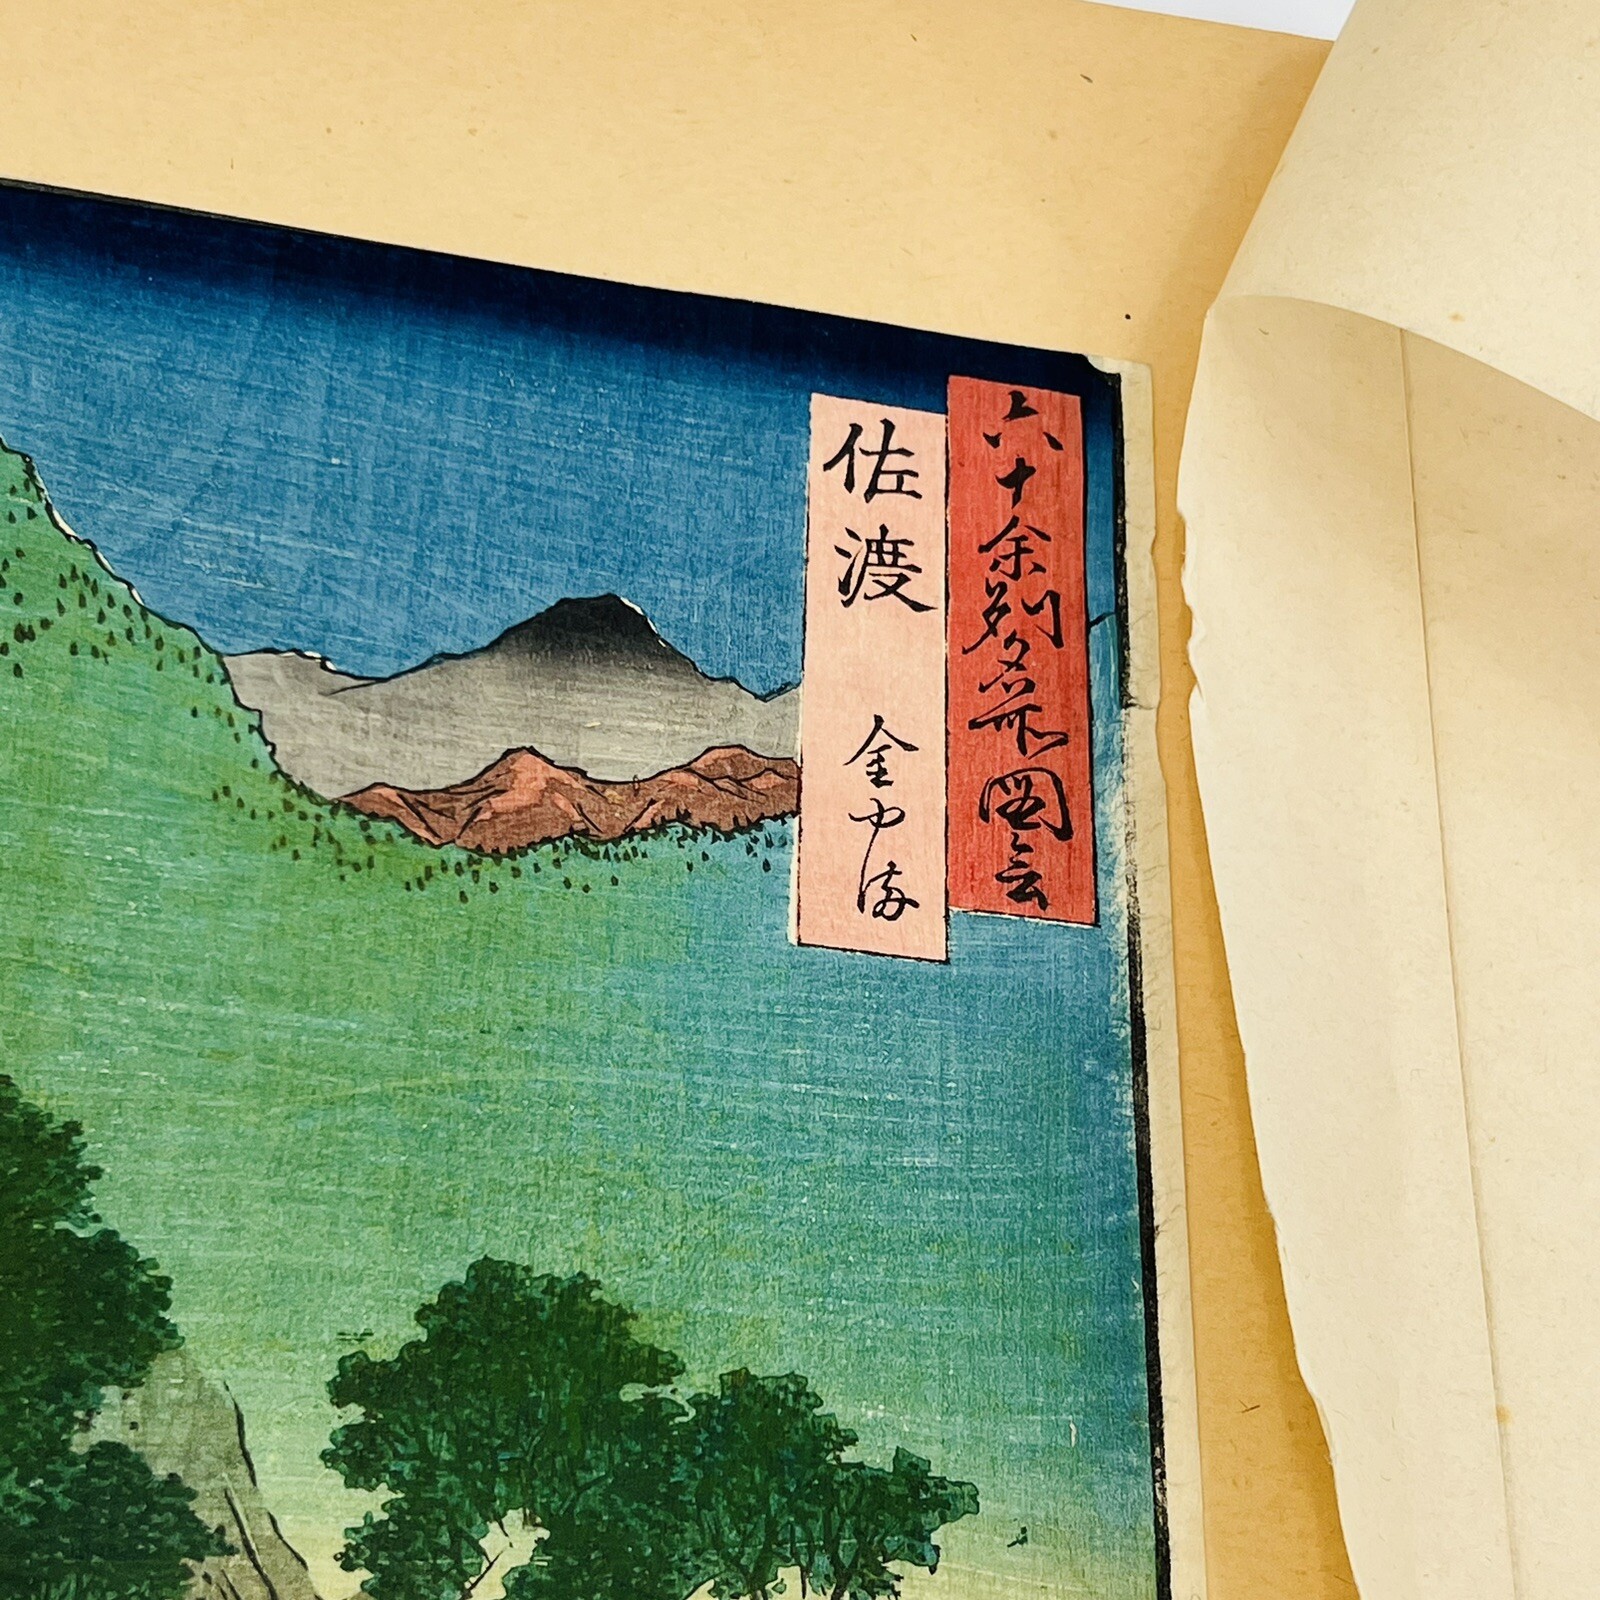 六十余州名所図会
佐渡 金やま